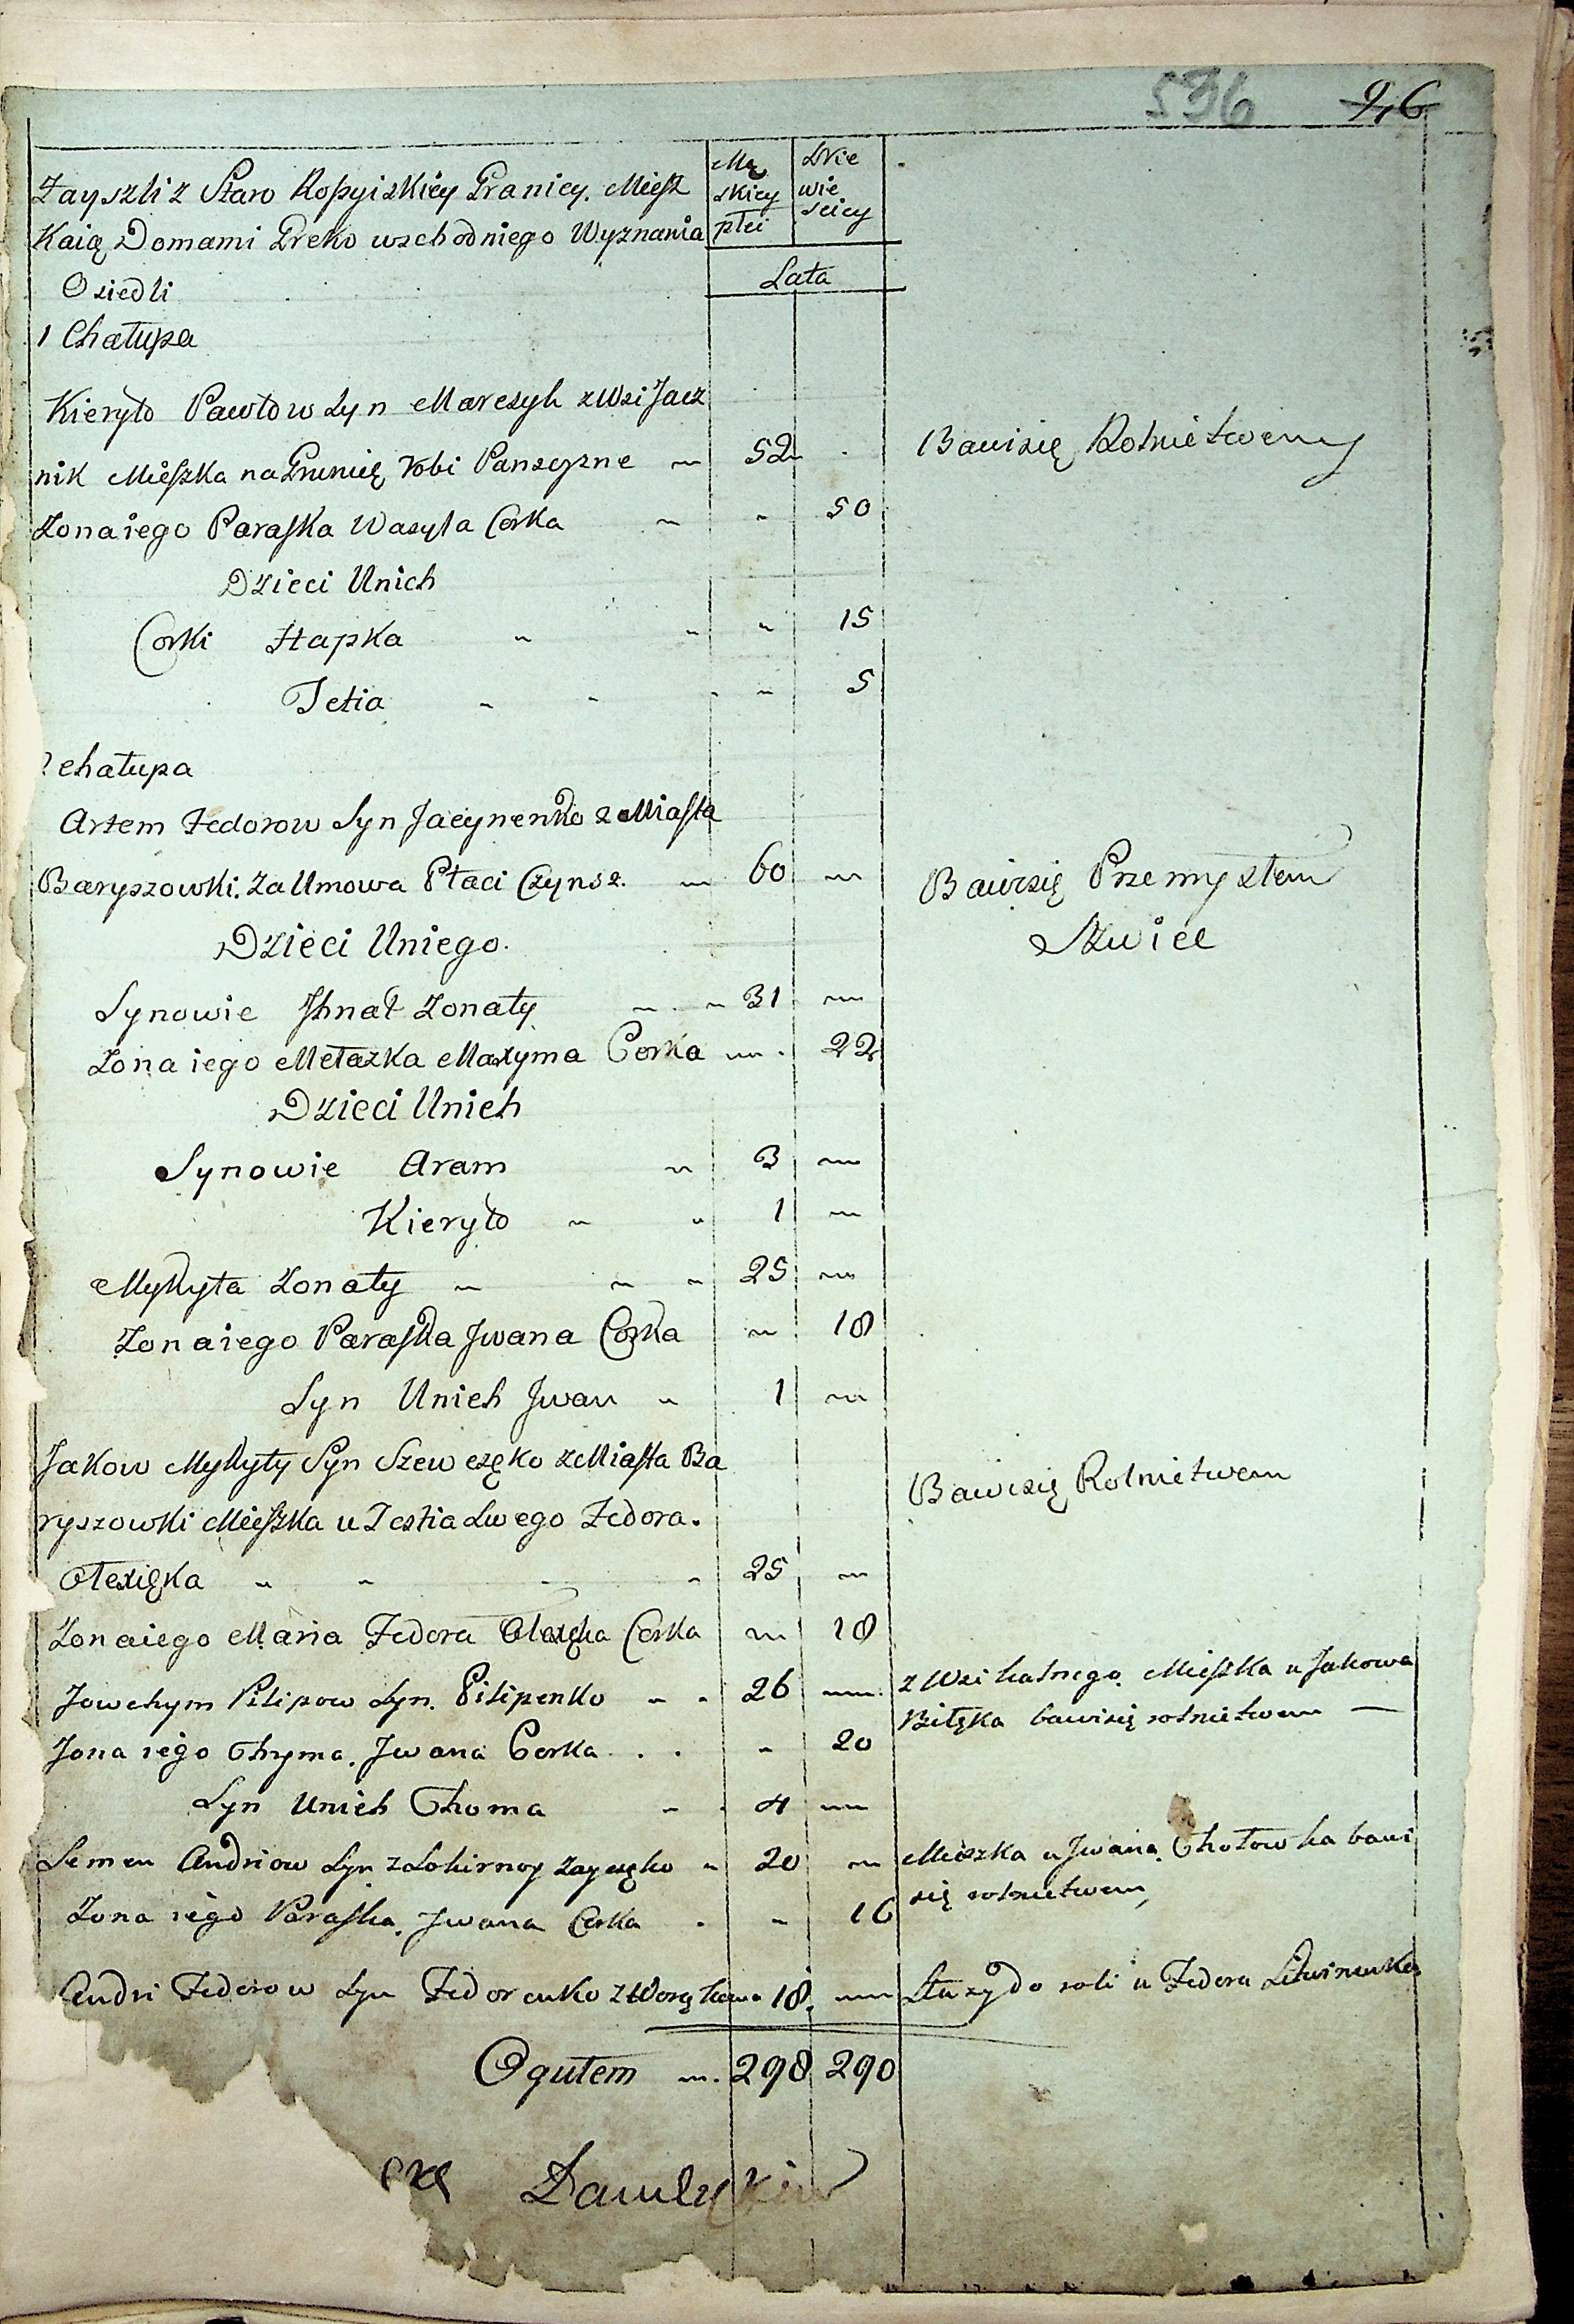 536 96
Zayszli z Staro Rossyiskiey Granicy. Miesz
Kaią Domami Greko wschodniego Wyznania
Osiedli
Mę
skiey
płci
Dzie
wie
sciey
Lata
1 Chałupa
Kieryło Pawłow Syn Marczyk z Wsi Jacz
nik Mieszka na Gruncię robi Panszczyzne 52 Bawi się Rolnictwem
Zona iego Paraska Wasyla Corka 50
Dzieci Unich
Corki Hapka 15
Tetia 5
2 chałupa
Artem Fedorow Syn Jacynenko z Miasta
Baryszowki. Za Umowa Płaci Czynsz. 60 Bawi się Przemysłem
Szwiec
Dzieci Uniego.
Synowie Ihnat Zonaty 31
Zona iego Metazka Maxyma Corka 22
Dzieci Unich
Synowie Aram 3
Kieryło 1
Mykyta Zonaty 25
Zona iego Paraska Jwana Corka 18
Syn Unich Jwan 1
Jakow Mykyty Syn Szewczęko z Miasta Ba
ryszowki Mieszka u Testia Swego Fedora. Bawi się Rolnictwem
Ołexięka 25
Zona iego Maria Fedora Olexęka Corka 18
Jowchym Pilipow Syn. Pilipenko 26 z Wsi Mieszka u Jakowa
Biłęka bawi się rolnictwem
Zona iego Chyma. Jwana Corka 20
Syn Unich Choma 4
Semen Andriow Syn z Zayczęko 20 Mieszka u Jwana Chołowka bawi
się rolnictwem
Zona iego Paraska. Jwana Corka 16
Andri Fedorow Syn Fedorenko z 18. Służy do roli u Fedora Litwinenka
Ogułem 298 290